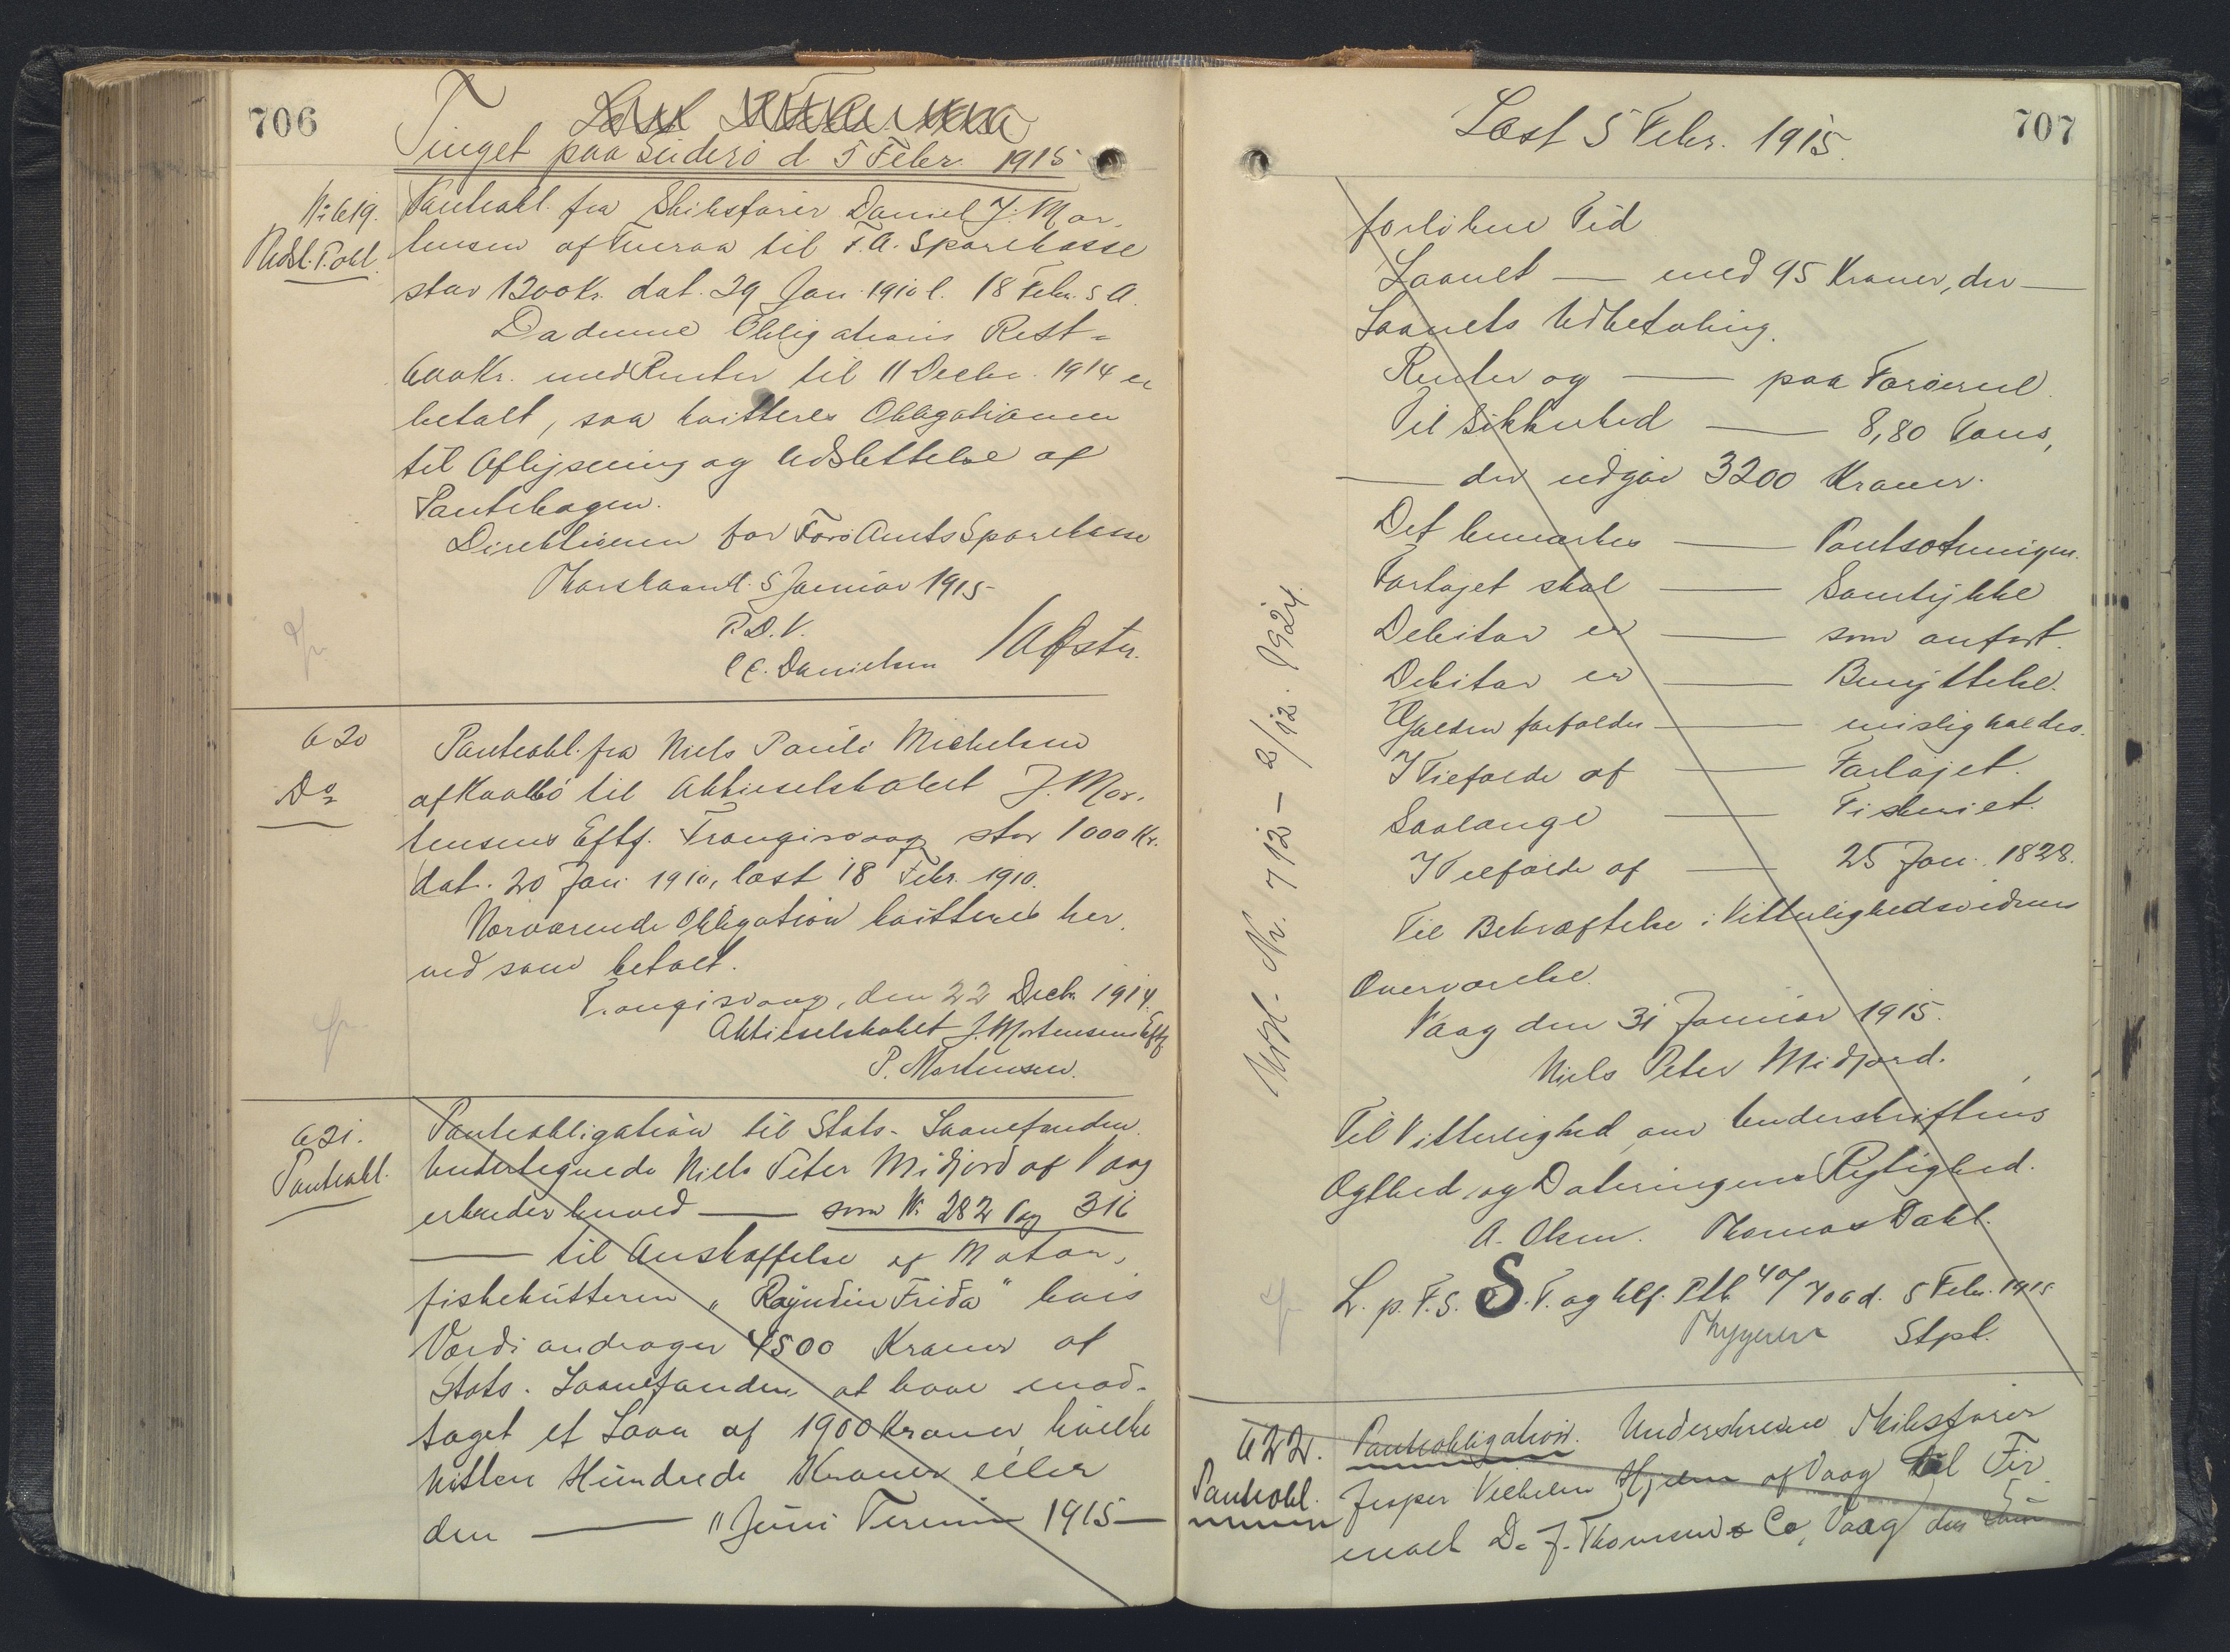 706
Tinget paa Suderø d 5 Febr. 1915
No 619.
Udsl. P. obl.
Panteobl. fra Skibsfører Daniel J. Mor-
tensen af Tveraa til F. A. Sparekasse
stor 1200 Kr. dat. 29 Jan. 1910 l. 18 Febr. s. A.
Da denne Obligations Rest =
600 Kr. med Renter til 11 Decbr. 1914 er
betalt, saa kvitteres Obligationen
til Aflysning og Udslettelse af
Pantebogen.
Direktionen for Færø Amts Sparekasse
Thorshavn d. 5 Januar 1915
P. D. V.
C. C. Danielsen
620
Do
Panteobl. fra Niels Pauli Michelsen
af Kvalbø til Aktieselskabet J. Mor-
tensens Eftf. Trangisvaag stor 1000 Kr.
dat. 20 Jan. 1910, læst 18 Febr. 1910.
Nærværende Obligation kvitteres her-
ved som betalt.
Trangisvaag, den 22 Decbr. 1914.
Aktieselskabet J. Mortensens Eftf
P. Mortensen.
621.
Panteobl.
Panteobligation til Stats-Laanefonden.
Undertegnede Niels Peter Midjord af Vaag
erkender herved — som No 282 Pag 316
— til Anskaffelse af Motor-
fiskekutteren " Frida" hvis
Værdi andrager 4500 Kroner af
Stats-Laanefonden at have mod-
taget et Laan af 1900 Kroner, hvilke
Nitten Hundrede Kroner eller
den — 11 Juni Termin 1915 —
707
Læst 5 Febr. 1915.
forløbne Tid
Laanet — med 95 Kroner, der —
Laanets Udbetaling.
Renter og — paa Færøerne.
Til Sikkerhed — 8,80 Tons,
— der udgør 3200 Kroner.
Det bemærkes — Pantsætningen.
Fartøjet skal — Samtykke
Debitor er — som anført.
Debitor er — Benyttelse.
Gælden forfalder — misligholdes.
I Tilfælde af — Fartøjet.
Saalænge — Fiskeriet.
I Tilfælde af — 25 Jan. 1828.
Til Bekræftelse i Vitterlighedsvidners
Overværelse.
Vaag den 31 Januar 1915.
Niels Peter Midjord.
Til Vitterlighed om Underskriftens
Ægthed og Dateringens Rigtighed.
A. Olsen. Thomas Dahl.
L. p. F. S. S. T. og Ptb. 706 d. 5 Febr. 1915
Stpl.
Udsl. Nr. 712 - 2/12. 1924.
622.
Panteobl.
Panteobligation. Underskrevne Skibsfører
Jesper Vilhelm Hjelm af Vaag til Fir-
maet D. J. Thomsen & Co, Vaag den